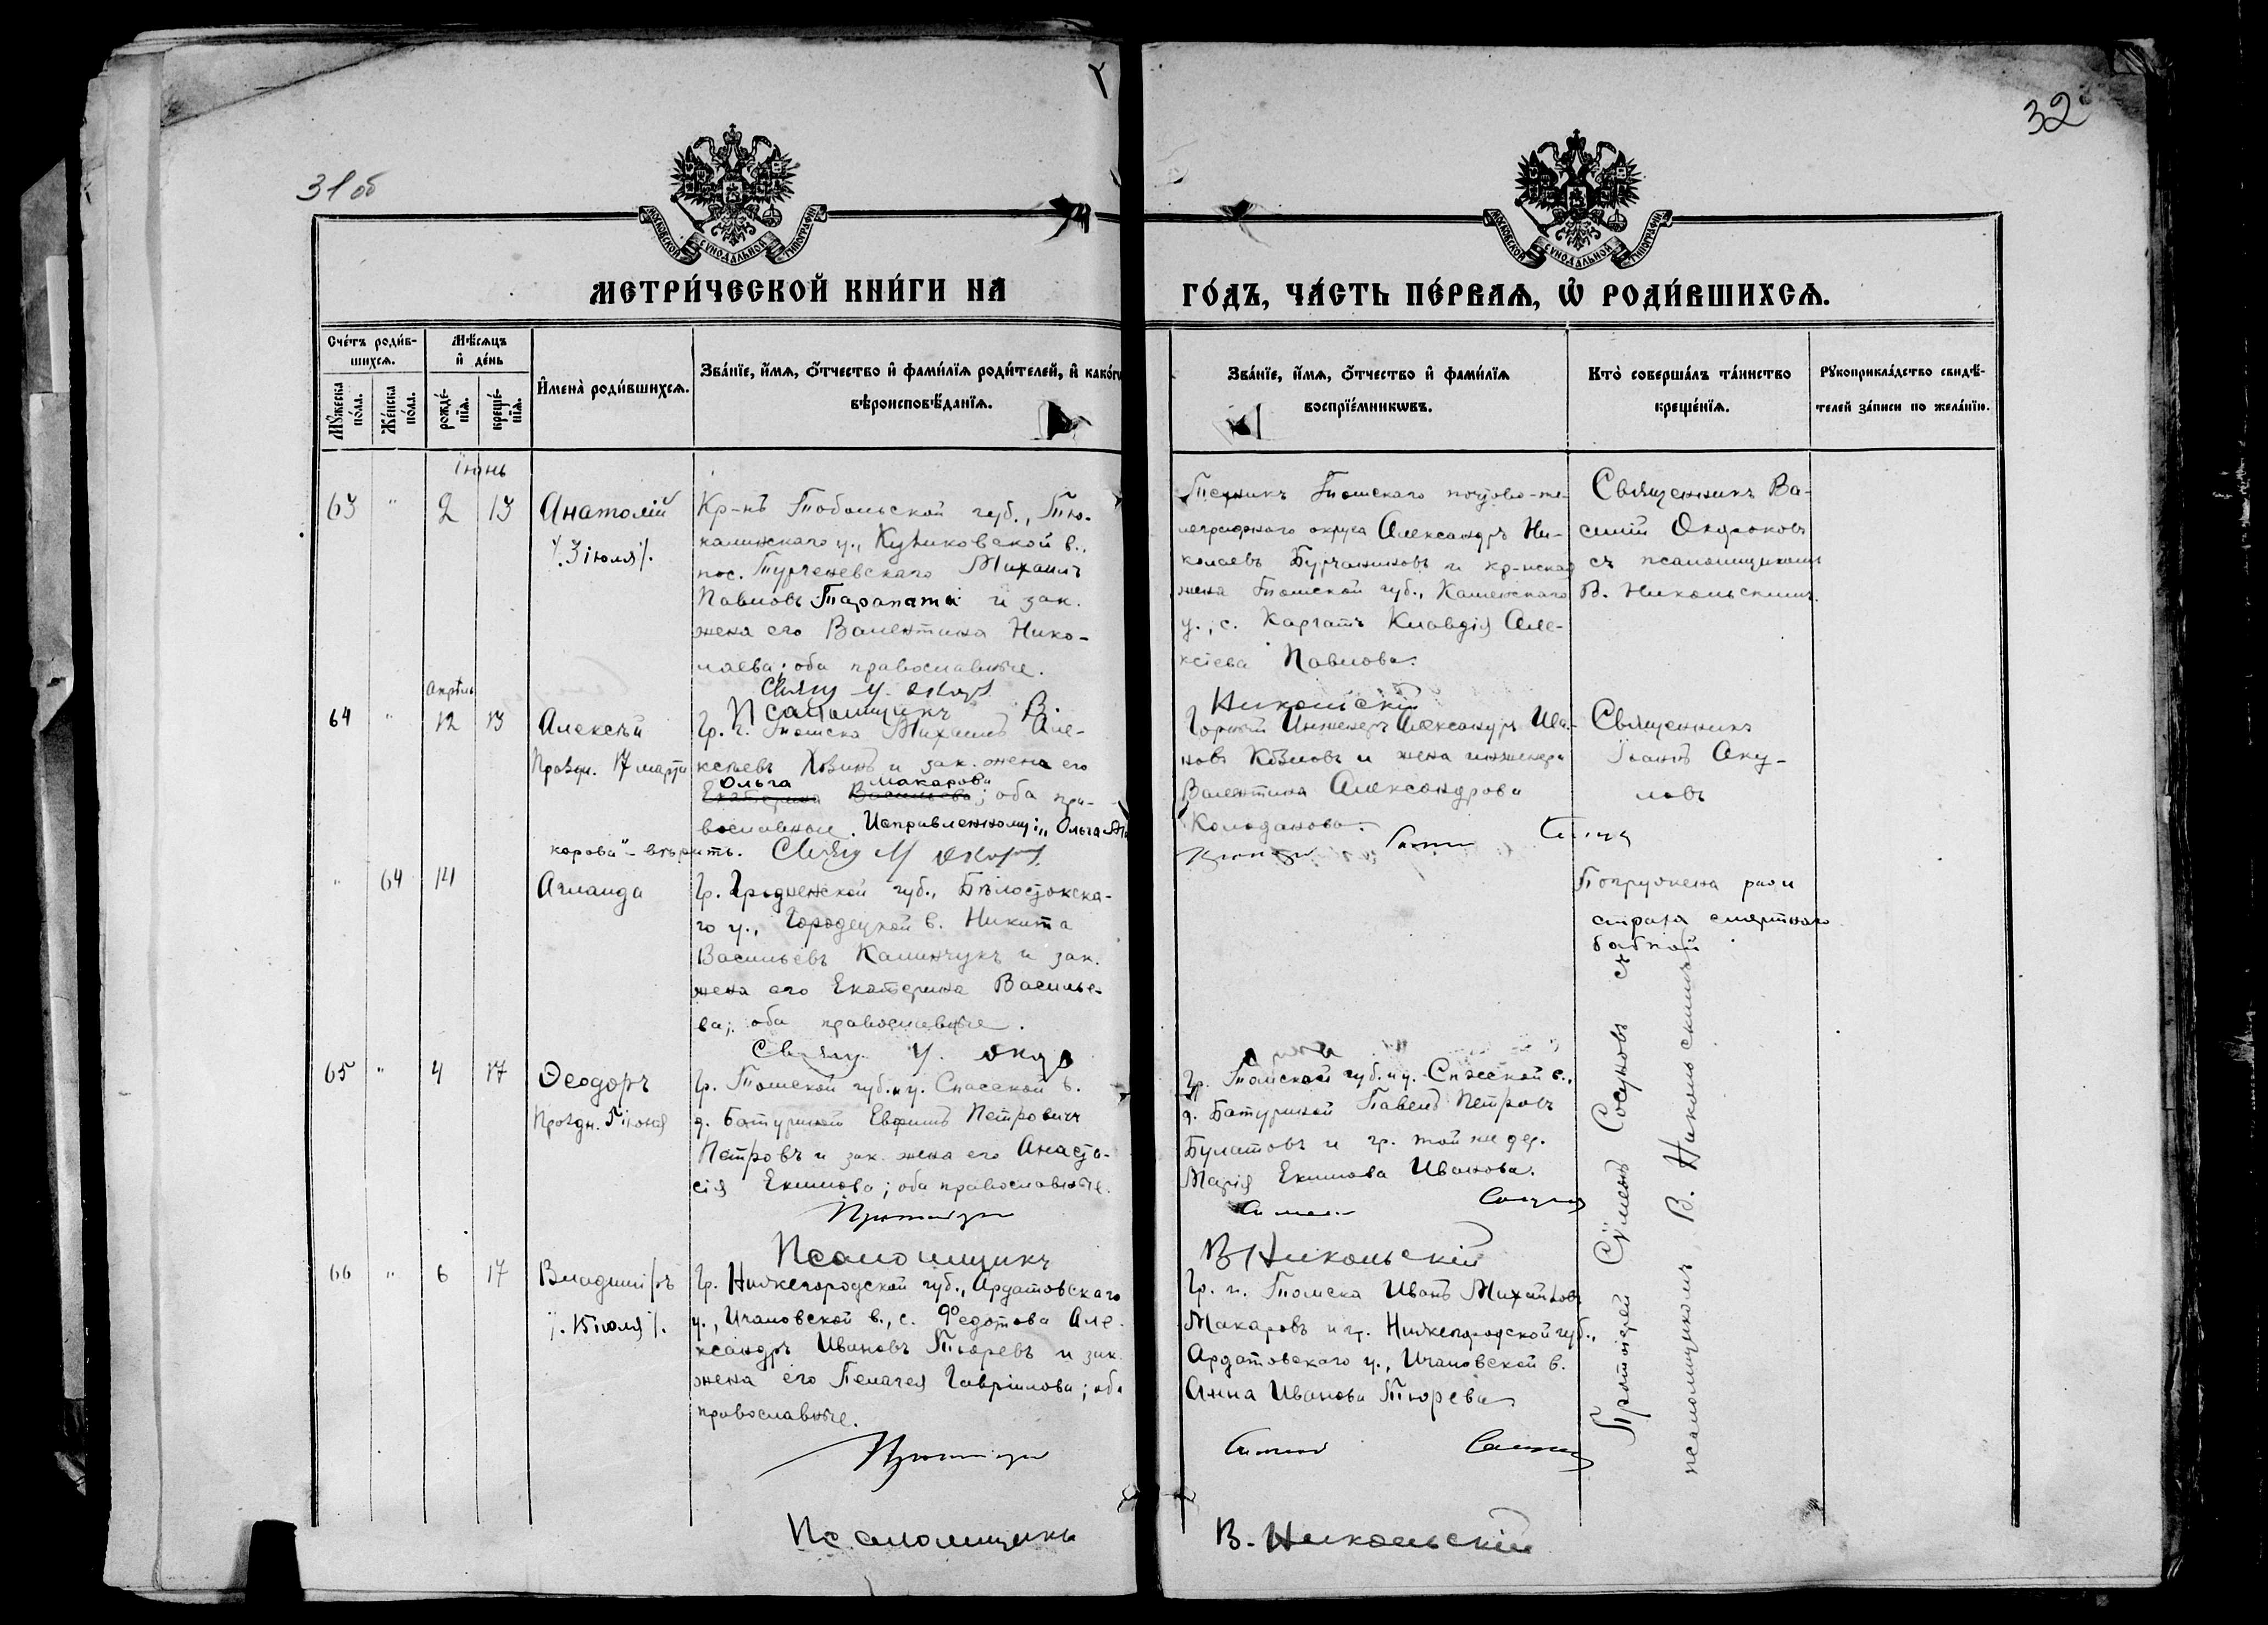 31 об
32
МОСКОВСКОЙ СѴНОДАЛЬНОЙ ТИПОГРАФІИ
МОСКОВСКОЙ СѴНОДАЛЬНОЙ ТИПОГРАФІИ
МЕТРИ́ЧЕСКОЙ КНИ́ГИ НА
ГО́ДЪ, ЧА́СТЬ ПЕ́РВАѦ, Ѡ҆ РОДИ́ВШИХСѦ.
Сче́тъ роди́в-
шихсѧ.
Мꙋ́жеска по́ла.
Же́нска по́ла.
Мѣ́сѧцъ
и҆ де́нь
рожде́-
нїѧ.
креще́-
нїѧ.
И҆мена̀ роди́вшихсѧ.
Зва́нїе, и҆́мѧ, ѻ҆́тчество и҆ фами́лїѧ роди́телей, и҆ како́гѡ
вѣроисповѣ́данїѧ.
Зва́нїе, и҆́мѧ, ѻ҆́тчество и҆ фами́лїѧ
воспрїе́мникѡвъ.
Кто̀ соверша́лъ та́инство
креще́нїѧ.
Рꙋкоприкла́дство свидѣ́-
телей за́писи по жела́нїю.
Іюнь
63 " 2 13 Анатолій
/. 3 іюля /.
Кр-нъ Тобольской губ., Тю-
калинскаго у., Куликовской в.,
пос. Тургеневскаго Михаилъ
Павловъ Тарапата и зак.
жена его Валентина Нико-
лаева; оба православные.
Техникъ Томскаго почтово-те-
леграфнаго округа Александръ Ни-
колаевъ Бурчаниновъ и кр-нская
жена Томской губ., Каинскаго
у., с. Каргатъ Клавдія Але-
ксіева Павлова.
Священникъ Ва-
силій Ондроковъ
съ псаломщикомъ
В. Никольскимъ.
Псаломщикъ В. Никольскій
Апрѣль
64 " 12 13 Алексѣй
Праздн. 17 марта
Гр. г. Томска Михаилъ Але-
ксѣевъ Хвинъ и зак. жена его
Ольга Макарова
Екатерина Васильева; оба пра-
вославные. Исправленному: „Ольга Ма
карова" – вѣрить.
Горный Инженеръ Александръ Ива-
новъ Козловъ и жена инженера
Валентина Александрова
Колоданова.
Священникъ
Іоаннъ Аку-
ловъ
" 64 14 Аглаида
Гр. Гродненской губ., Бѣлостокска-
го у., Городецкой в. Никита
Васильевъ Калинчукъ и зак.
жена его Екатерина Василье-
ва; оба православные.
Погружена ради
страха смертнаго
бабкой
65 " 4 17 Ѳеодоръ
Праздн. 8 іюня
Гр. Томской губ. и у. Спасской в.
д. Батуриной Евфимъ Петровичъ
Петровъ и зак. жена его Анаста-
сія Екимова; оба православные.
Гр. Томской губ. и у. Спасской в.,
д. Батуриной Павелъ Петровъ
Булатовъ и гр. той же дер.
Марія Екимова Иванова.
Псаломщикъ В Никольскій
66 " 6 17 Владиміръ
/. 15 іюля /.
Гр. Нижегородской губ., Ардатовскаго
у., Ичаловской в., с. Федотова Але-
ксандръ Ивановъ Тюревъ и зак.
жена его Пелагея Гавріилова; оба
православные.
Гр. г. Томска Иванъ Михайловъ
Макаровъ и гр. Нижегородской губ.,
Ардатовскаго у., Ичаловской в.
Анна Иванова Тюрева
Протоіерей Сѵмеонъ Сосуновъ съ
псаломщикомъ В. Никольскимъ
Псаломщикъ В. Никольскій